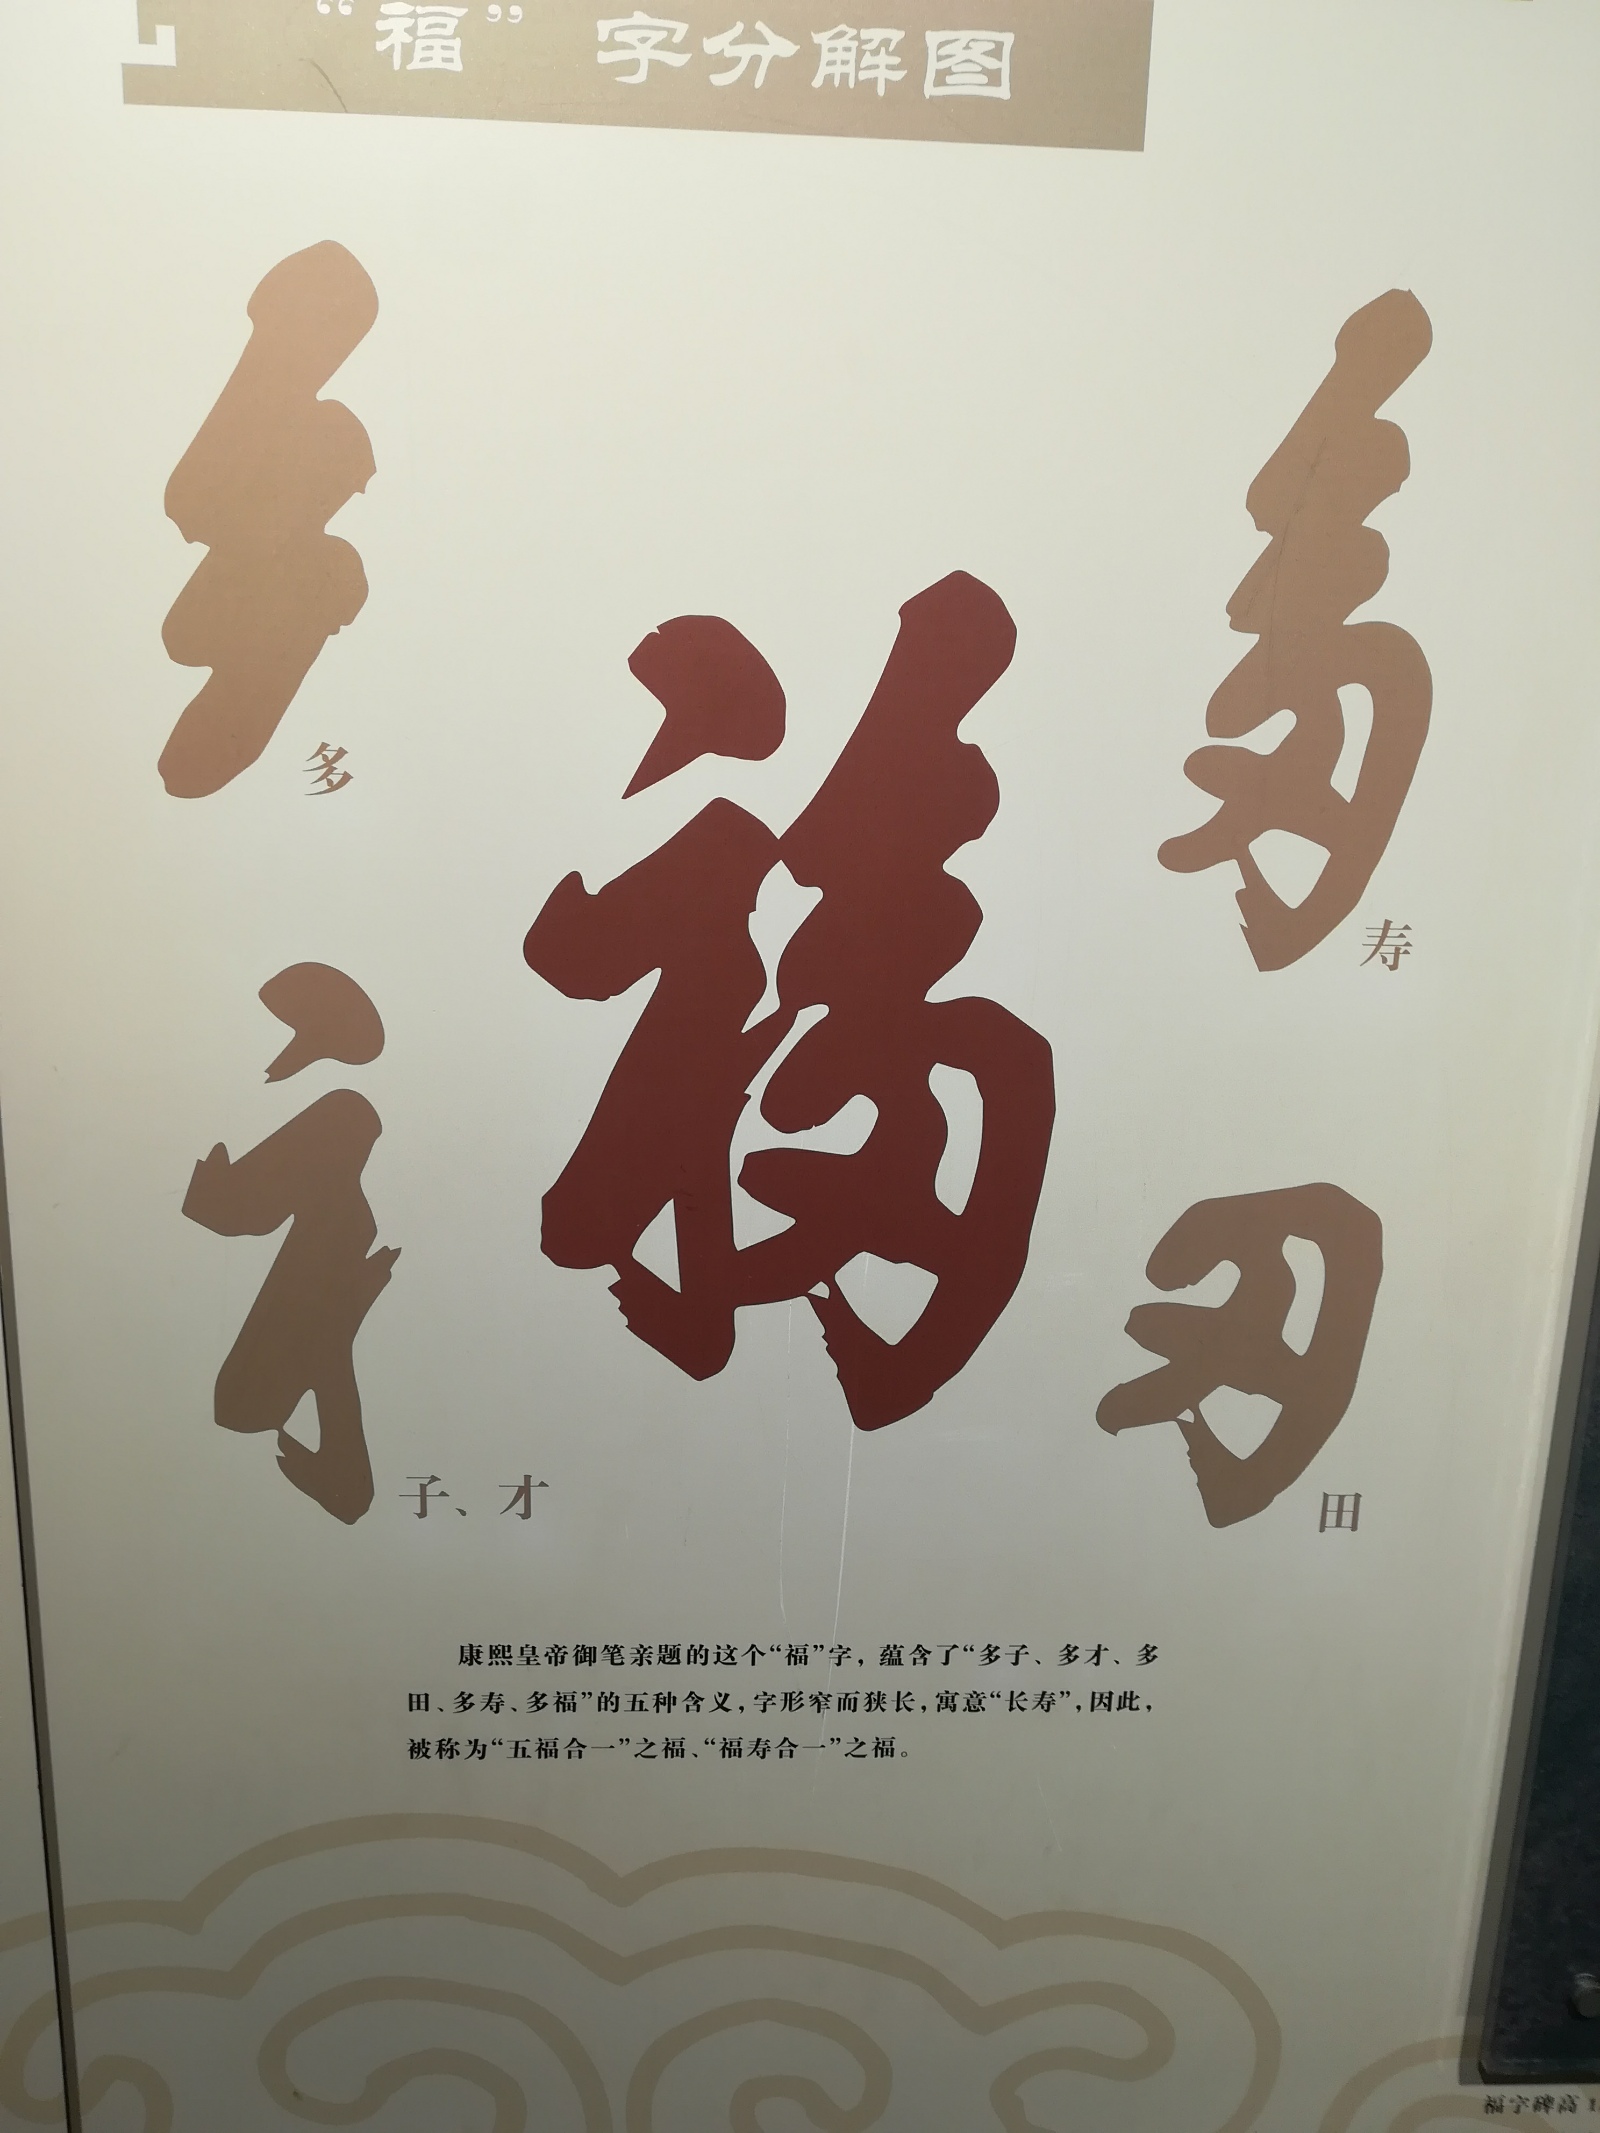 “福”字分解图
多
寿
福
子、才
田
康熙皇帝御笔亲题的这个“福”字，蕴含了“多子、多才、多
田、多寿、多福”的五种含义，字形窄而狭长，寓意“长寿”，因此，
被称为“五福合一”之福、“福寿合一”之福。
福字碑高1